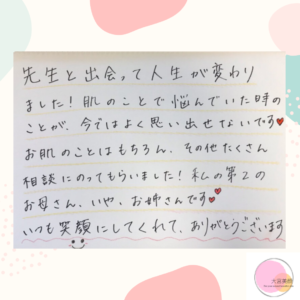 先生と出会って人生が変わり
ました！肌のことで悩んでいた時の
ことが、今ではよく思い出せないです
お肌のことはもちろん、その他たくさん
相談にのってもらいました！私の第2の
お母さん、いや、お姉さんです
いつも笑顔にしてくれて、ありがとうございます